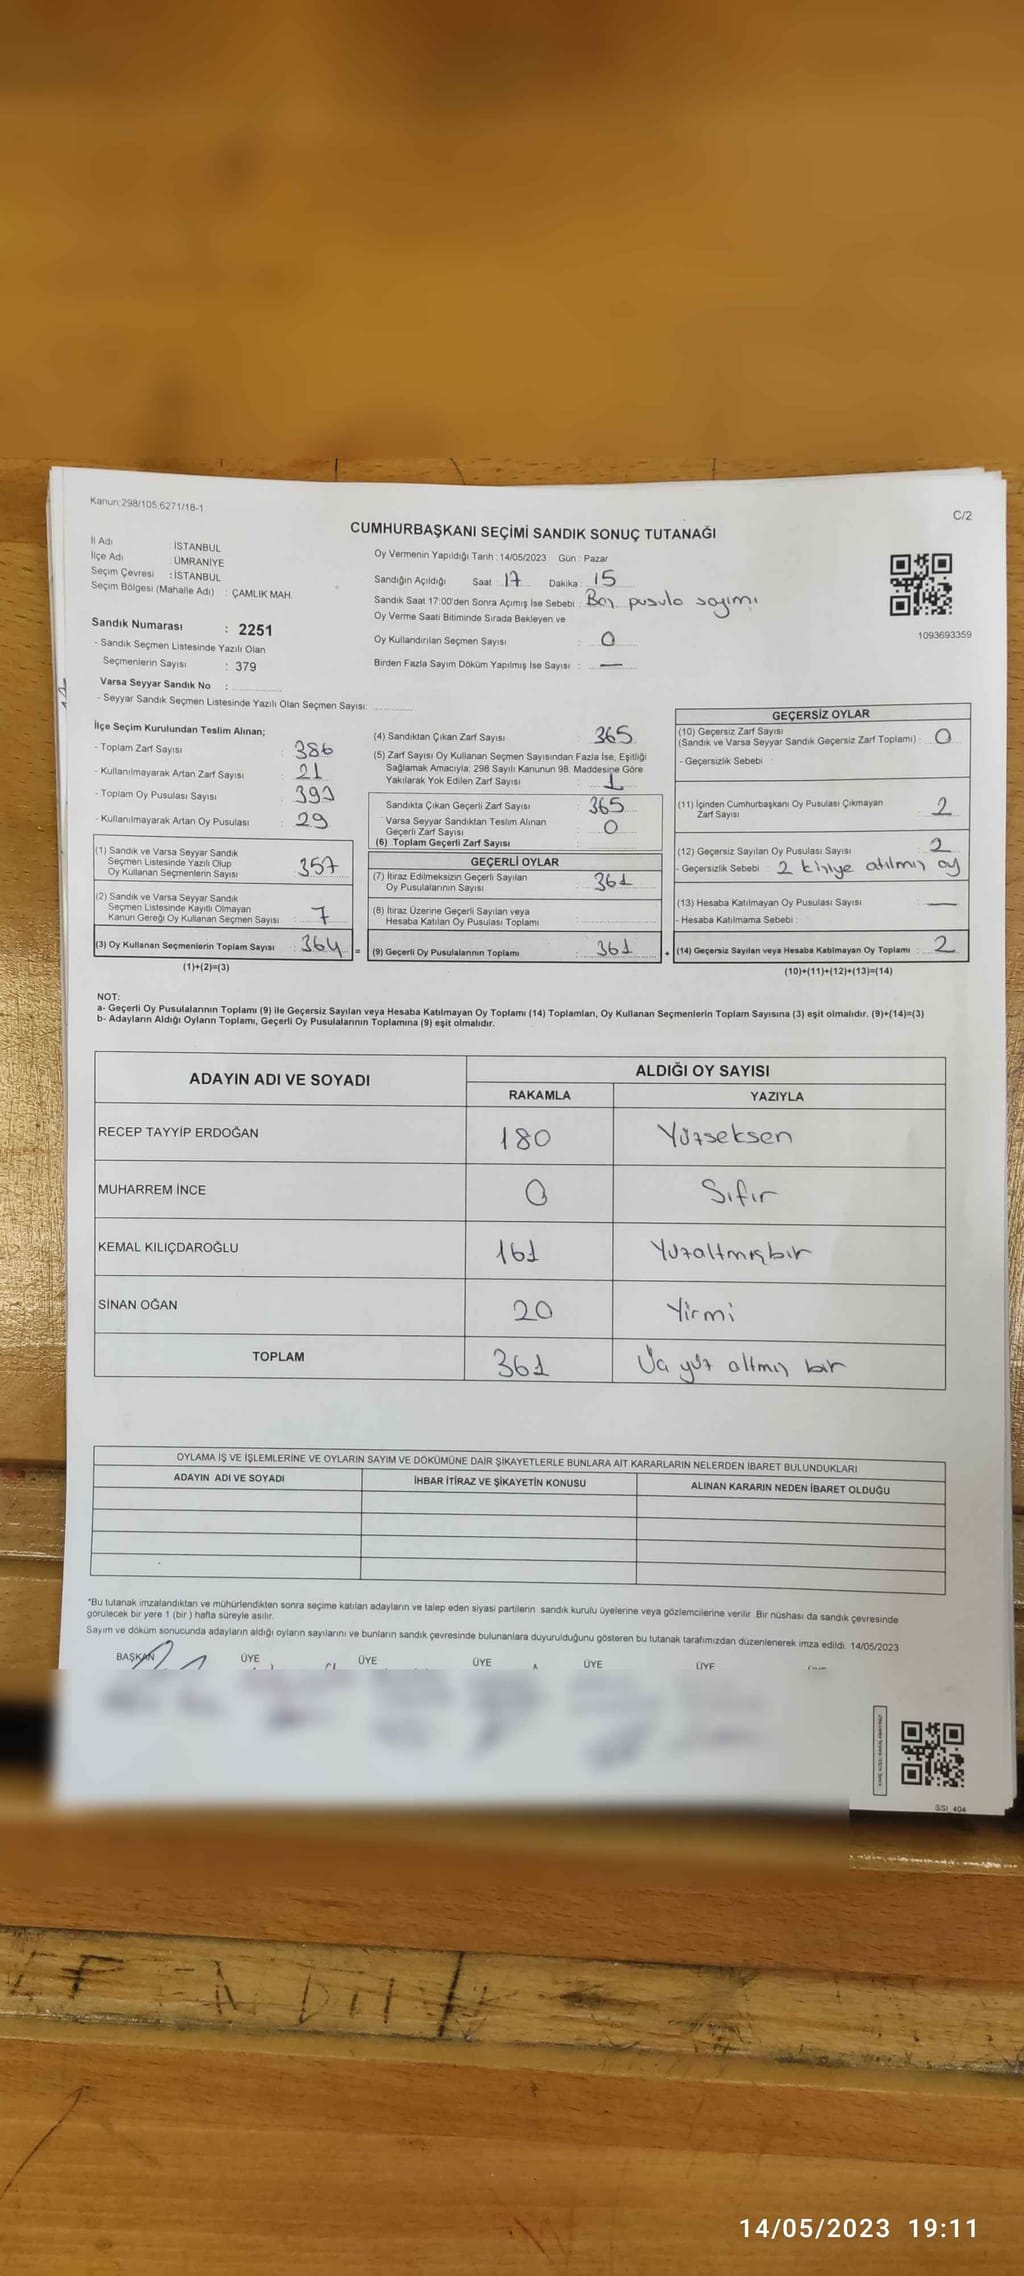 Kanun:298/105;6271/18-1
C/2
CUMHURBAŞKANI SEÇİMİ SANDIK SONUÇ TUTANAĞI
İl Adı : İSTANBUL
İlçe Adı : ÜMRANİYE
Seçim Çevresi : İSTANBUL
Seçim Bölgesi (Mahalle Adı) : ÇAMLIK MAH.
Sandık Numarası : 2251
- Sandık Seçmen Listesinde Yazılı Olan
Seçmenlerin Sayısı : 379
Varsa Seyyar Sandık No :
- Seyyar Sandık Seçmen Listesinde Yazılı Olan Seçmen Sayısı:
Oy Vermenin Yapıldığı Tarih :14/05/2023 Gün : Pazar
Sandığın Açıldığı Saat : 17 Dakika : 15
Sandık Saat 17:00'den Sonra Açımış İse Sebebi : Boş pusula sayımı
Oy Verme Saati Bitiminde Sırada Bekleyen ve
Oy Kullandırılan Seçmen Sayısı : 0
Birden Fazla Sayım Döküm Yapılmış İse Sayısı : —
1093693359
İlçe Seçim Kurulundan Teslim Alınan;
- Toplam Zarf Sayısı : 386
- Kullanılmayarak Artan Zarf Sayısı : 21
- Toplam Oy Pusulası Sayısı : 393
- Kullanılmayarak Artan Oy Pusulası : 29
(1) Sandık ve Varsa Seyyar Sandık
Seçmen Listesinde Yazılı Olup
Oy Kullanan Seçmenlerin Sayısı : 357
(2) Sandık ve Varsa Seyyar Sandık
Seçmen Listesinde Kayıtlı Olmayan
Kanun Gereği Oy Kullanan Seçmen Sayısı : 7
(3) Oy Kullanan Seçmenlerin Toplam Sayısı : 364 =
(1)+(2)=(3)
(4) Sandıktan Çıkan Zarf Sayısı : 365
(5) Zarf Sayısı Oy Kullanan Seçmen Sayısından Fazla İse, Eşitliği
Sağlamak Amacıyla; 298 Sayılı Kanunun 98. Maddesine Göre
Yakılarak Yok Edilen Zarf Sayısı : 1
Sandıkta Çıkan Geçerli Zarf Sayısı : 365
Varsa Seyyar Sandıktan Teslim Alınan
Geçerli Zarf Sayısı : 0
(6) Toplam Geçerli Zarf Sayısı :
GEÇERLİ OYLAR
(7) İtiraz Edilmeksizin Geçerli Sayılan
Oy Pusulalarının Sayısı : 361
(8) İtiraz Üzerine Geçerli Sayılan veya
Hesaba Katılan Oy Pusulası Toplamı :
(9) Geçerli Oy Pusulalarının Toplamı : 361 +
GEÇERSİZ OYLAR
(10) Geçersiz Zarf Sayısı
(Sandık ve Varsa Seyyar Sandık Geçersiz Zarf Toplamı) : 0
- Geçersizlik Sebebi :
(11) İçinden Cumhurbaşkanı Oy Pusulası Çıkmayan
Zarf Sayısı : 2
(12) Geçersiz Sayılan Oy Pusulası Sayısı : 2
- Geçersizlik Sebebi : 2 kişiye atılmış oy
(13) Hesaba Katılmayan Oy Pusulası Sayısı : —
- Hesaba Katılmama Sebebi :
(14) Geçersiz Sayılan veya Hesaba Katılmayan Oy Toplamı : 2
(10)+(11)+(12)+(13)=(14)
NOT:
a- Geçerli Oy Pusulalarının Toplamı (9) ile Geçersiz Sayılan veya Hesaba Katılmayan Oy Toplamı (14) Toplamları, Oy Kullanan Seçmenlerin Toplam Sayısına (3) eşit olmalıdır. (9)+(14)=(3)
b- Adayların Aldığı Oyların Toplamı, Geçerli Oy Pusulalarının Toplamına (9) eşit olmalıdır.
ADAYIN ADI VE SOYADI
ALDIĞI OY SAYISI
RAKAMLA YAZIYLA
RECEP TAYYİP ERDOĞAN 180 Yüzseksen
MUHARREM İNCE 0 Sıfır
KEMAL KILIÇDAROĞLU 161 Yüzaltmışbir
SİNAN OĞAN 20 Yirmi
TOPLAM 361 Üç yüz altmış bir
OYLAMA İŞ VE İŞLEMLERİNE VE OYLARIN SAYIM VE DÖKÜMÜNE DAİR ŞİKAYETLERLE BUNLARA AİT KARARLARIN NELERDEN İBARET BULUNDUKLARI
ADAYIN ADI VE SOYADI İHBAR İTİRAZ VE ŞİKAYETİN KONUSU ALINAN KARARIN NEDEN İBARET OLDUĞU
*Bu tutanak imzalandıktan ve mühürlendikten sonra seçime katılan adayların ve talep eden siyasi partilerin sandık kurulu üyelerine veya gözlemcilerine verilir. Bir nüshası da sandık çevresinde
görülecek bir yere 1 (bir) hafta süreyle asılır.
Sayım ve döküm sonucunda adayların aldığı oyların sayılarını ve bunların sandık çevresinde bulunanlara duyurulduğunu gösteren bu tutanak tarafımızdan düzenlenerek imza edildi. 14/05/2023
BAŞKAN ÜYE ÜYE ÜYE ÜYE ÜYE
GSI 404
14/05/2023 19:11